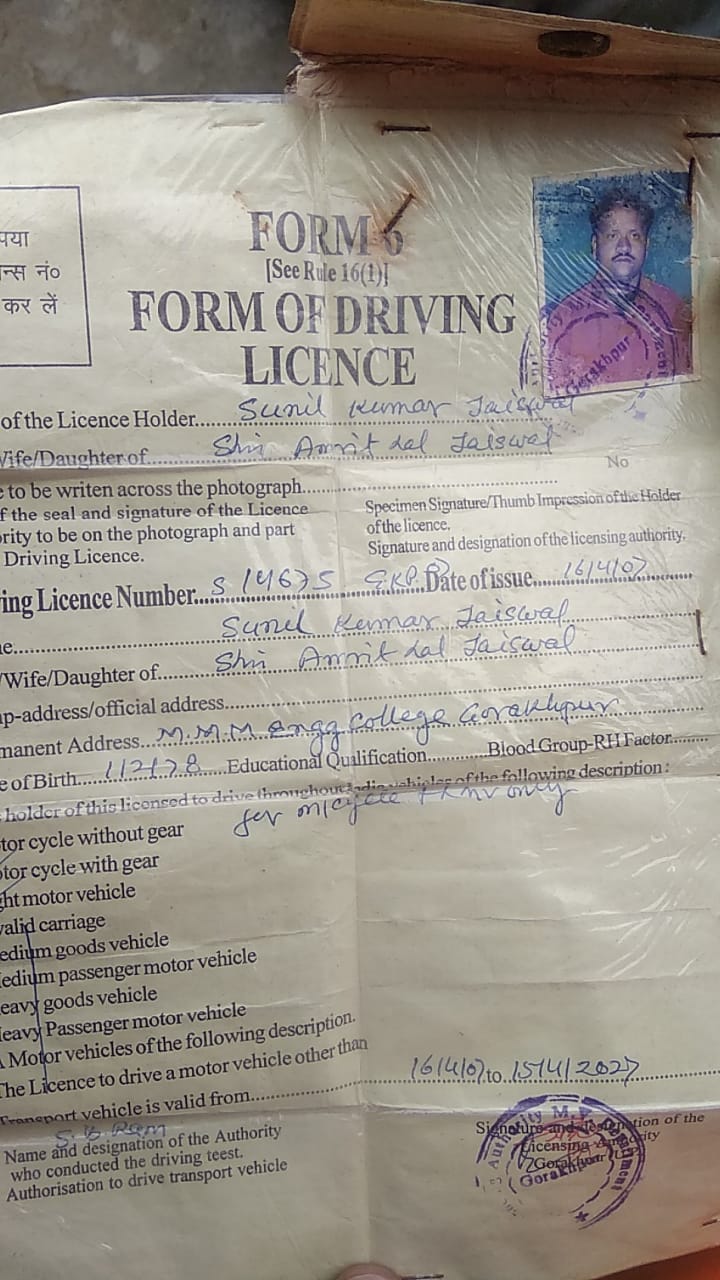 पया
न्स नं०
कर लें
FORM 6
[See Rule 16(1)]
FORM OF DRIVING
LICENCE
Gorakhpur
of the Licence Holder Sunil Kumar Jaiswal
Wife/Daughter of Shri Amrit Lal Jaiswal
No
e to be writen across the photograph
f the seal and signature of the Licence
ority to be on the photograph and part
Driving Licence.
Specimen Signature/Thumb Impression of the Holder
of the licence.
Signature and designation of the licensing authority.
ing Licence Number S 14675 GKP Date of issue 16/4/07
e Sunil Kumar Jaiswal
/Wife/Daughter of Shri Amrit Lal Jaiswal
p-address/official address
manent Address M.M.M Engg College Gorakhpur
e of Birth 1/2/78 Educational Qualification Blood Group-RH Factor
holder of this licensed to drive throughout India vehicles of the following description :
for m/cycle + LMV only
tor cycle without gear
otor cycle with gear
ght motor vehicle
valid carriage
edium goods vehicle
Medium passenger motor vehicle
eavy goods vehicle
Heavy Passenger motor vehicle
A Motor vehicles of the following description.
The Licence to drive a motor vehicle other than
Transport vehicle is valid from 16/4/07 to 15/4/2027
Name and designation of the Authority
who conducted the driving teest.
Authorisation to drive transport vehicle
Signature and designation of the
Licensing Authority
Authority M.V. Department
Gorakhpur